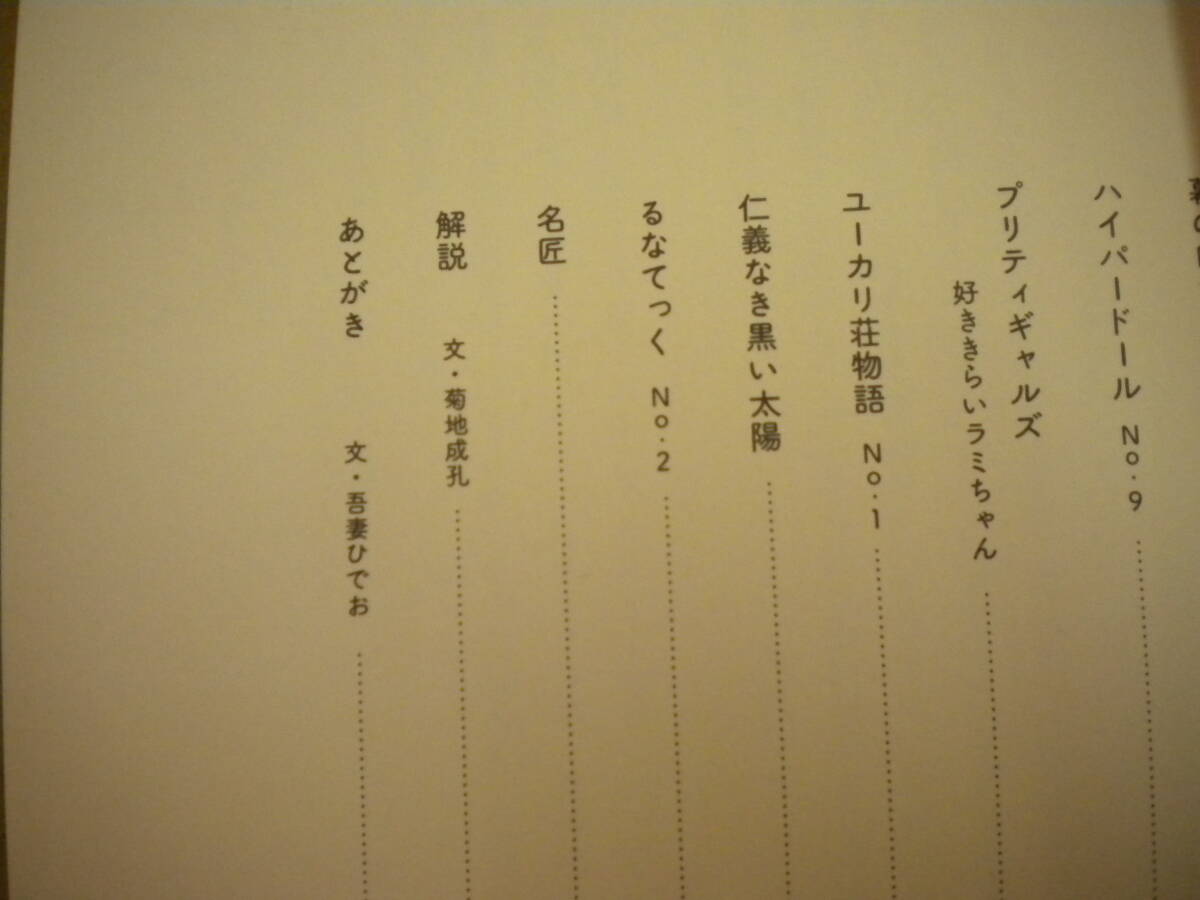 ハイパードール No.9
プリティギャルズ
好ききらいラミちゃん
ユーカリ荘物語 No.1
仁義なき黒い太陽
るなてっく No.2
名匠
解説 文・菊地成孔
あとがき 文・吾妻ひでお